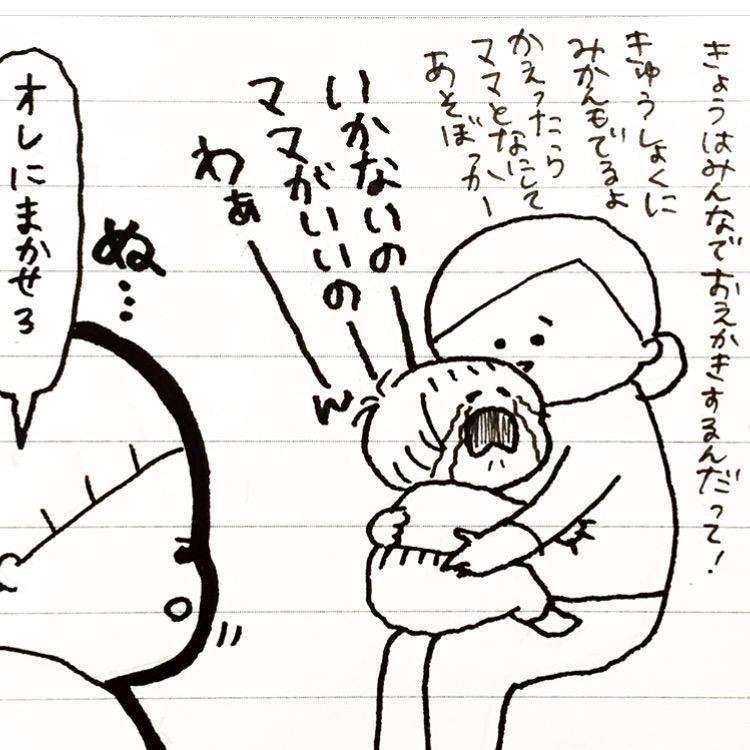 きょうはみんなでおえかきするんだって!
きゅうしょくに
みかんもでるよ
かえったら
ママとなにして
あそぼっかー
いかないの
ママがいいの
わぁーーーん
ぬ…
オレにまかせろ